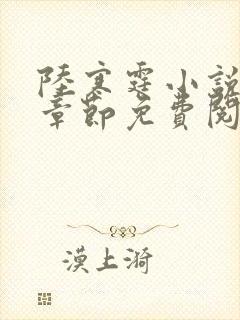 陸寒霆小說
章節免費閱
漠上漪